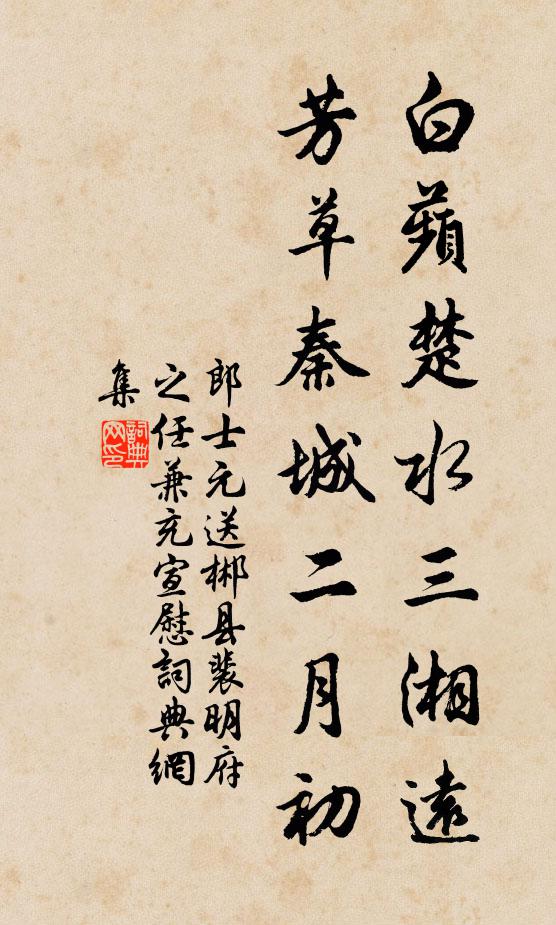 白蘋楚水三湘遠
芳草秦城二月初
郎士元送郴县裴明府
之任兼充宣慰詞典網
集
詞典
网印